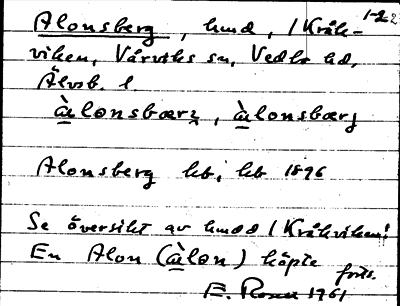 1-22
Alonsberg, hmd, / Kråk-
viken, Vårviks sn, Vedbo hd,
Älvsb. l
àlonsbærz, àlonsbærj
Alonsberg hb, hb 1896
Se översikt av hmdd / Kråkviken!
En Alon (àlon) köpte
forts.
E. Rosen 1961